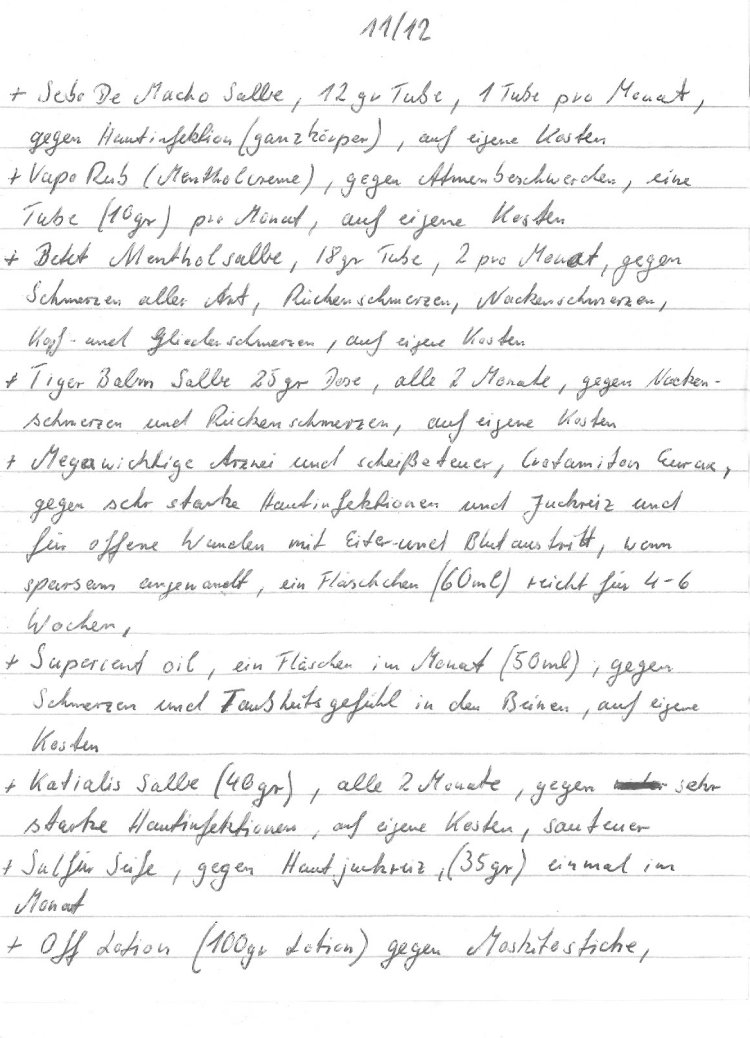 11/12
+ Sebo De Macho Salbe, 12 gr Tube, 1 Tube pro Monat,
gegen Hautinfektion (ganzkörper), auf eigene Kosten
+ Vapo Rub (Mentholcreme), gegen Atmenbeschwerden, eine
Tube (10gr) pro Monat, auf eigene Kosten
+ Mentholsalbe, 18gr Tube, 2 pro Monat, gegen
Schmerzen aller Art, Rückenschmerzen, Nackenschmerzen,
Kopf- und Gliederschmerzen, auf eigene Kosten
+ Tiger Balm Salbe 25gr Dose, alle 2 Monate, gegen Nacken-
schmerzen und Rückenschmerzen, auf eigene Kosten
+ Megawichtige Arznei und scheißeteuer, Crotamiton Eurax,
gegen sehr starke Hautinfektionen und Juckreiz und
für offene Wunden mit Eiter-und Blutaustritt, wenn
sparsam angewandt, ein Fläschchen (60ml) reicht für 4-6
Wochen,
+ oil, ein Fläschen im Monat (50ml), gegen
Schmerzen und Taubheitsgefühl in den Beinen, auf eigene
Kosten
+ Katialis Salbe (40gr), alle 2 Monate, gegen sehr
starke Hautinfektionen, auf eigene Kosten, sauteuer
+ Sulfur Seife, gegen Hautjuckreiz, (35gr) einmal im
Monat
+ Off Lotion (100gr Lotion) gegen Moskitostiche,